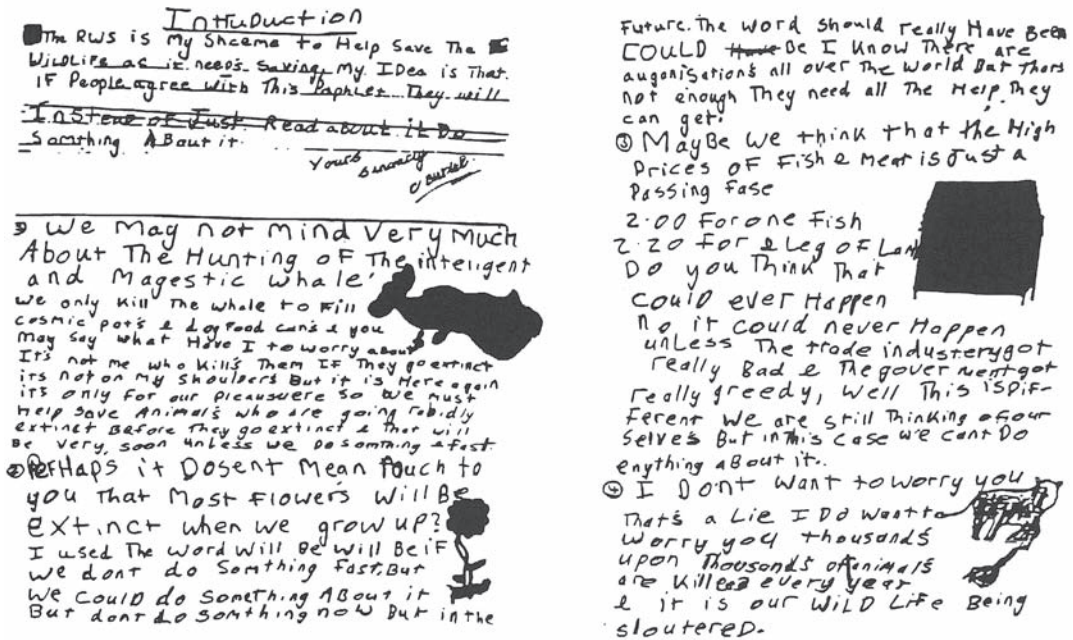 IntruDuction
The RWS is My Shceme to Help Save The
WildLife as it need's Saving My IDea is That
IF People agree with This Paphlet They will
Insteve of Just Read about it Do
Somthing About it
Yours
Sincerely
We May not mind Very Much
About The Hunting oF The inteligent
and Magestic whale
We only Kill The whale to Fill
Cosmic pot's & dog Food can's & you
May Say what Have I to worry about
It's not me who Kill's Them IF They go extinct
its not on My Shoulders But it is Here again
it's only For our pleausuere So we must
Help Save Animal's who are going rabidly
extinct BeFore They go extinct & That will
Be very, soon unless we Do somthing & fast.
② PerHaps it Dosent Mean Much to
you That Most Flowers Will Be
extinct when we grow up?
I used The Word Will Be Will Be iF
We dont do Somthing Fast, But
We Could do Something ABout it
But dont do Somthing now But in the
Future. The word Should really Have Been
COULD Have Be I Know There are
auganisation's all over The World But Thers
not enough They need all The Help They
can get!
③ MayBe We think that the High
Prices of Fish & Meat is Just a
Passing Fase
2.00 For one Fish
2.20 For a Leg of Lam
Do you Think That
Could ever Happen
No it could never Happen
unless The trade industery got
really Bad & The goverment got
really greedy, Well This is DiF-
Ferent We are still Thinking of our
Selves But in This Case we cant Do
enything aBout it..
④ I Don't Want to worry you
That's a Lie I Do Want to
Worry you thousand's
upon Thousand's of animal's
are Killed every year
& it is our WiLD LiFe Being
sloutereD.